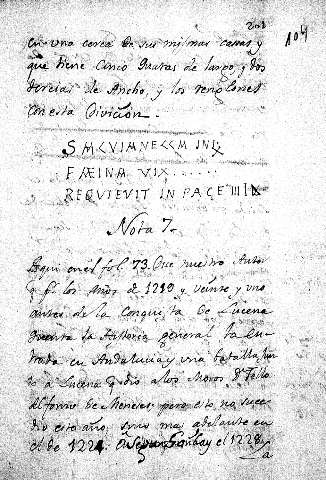 202
104
en una cerca de sus mismas casas y
que tiene cinco quartas de largo, y dos
tercias de Ancho, y los renglones
con esta Division.
REQVIEVIT IN PACE III
Nota 7.
Aqui en el fol. 73. Que nuestro Autor
los Años de 1219 y veinte y uno
antes de la Conquista de Lucena
la Historia general la en-
trada en Andalucia y una batalla jun
to a Lucena q dio a los Moros Dn Tello
Alfonso de Meneses, pero esto no suce
dio este año, sino mas adelante en
el de 1224. Garibay el 1228.
La